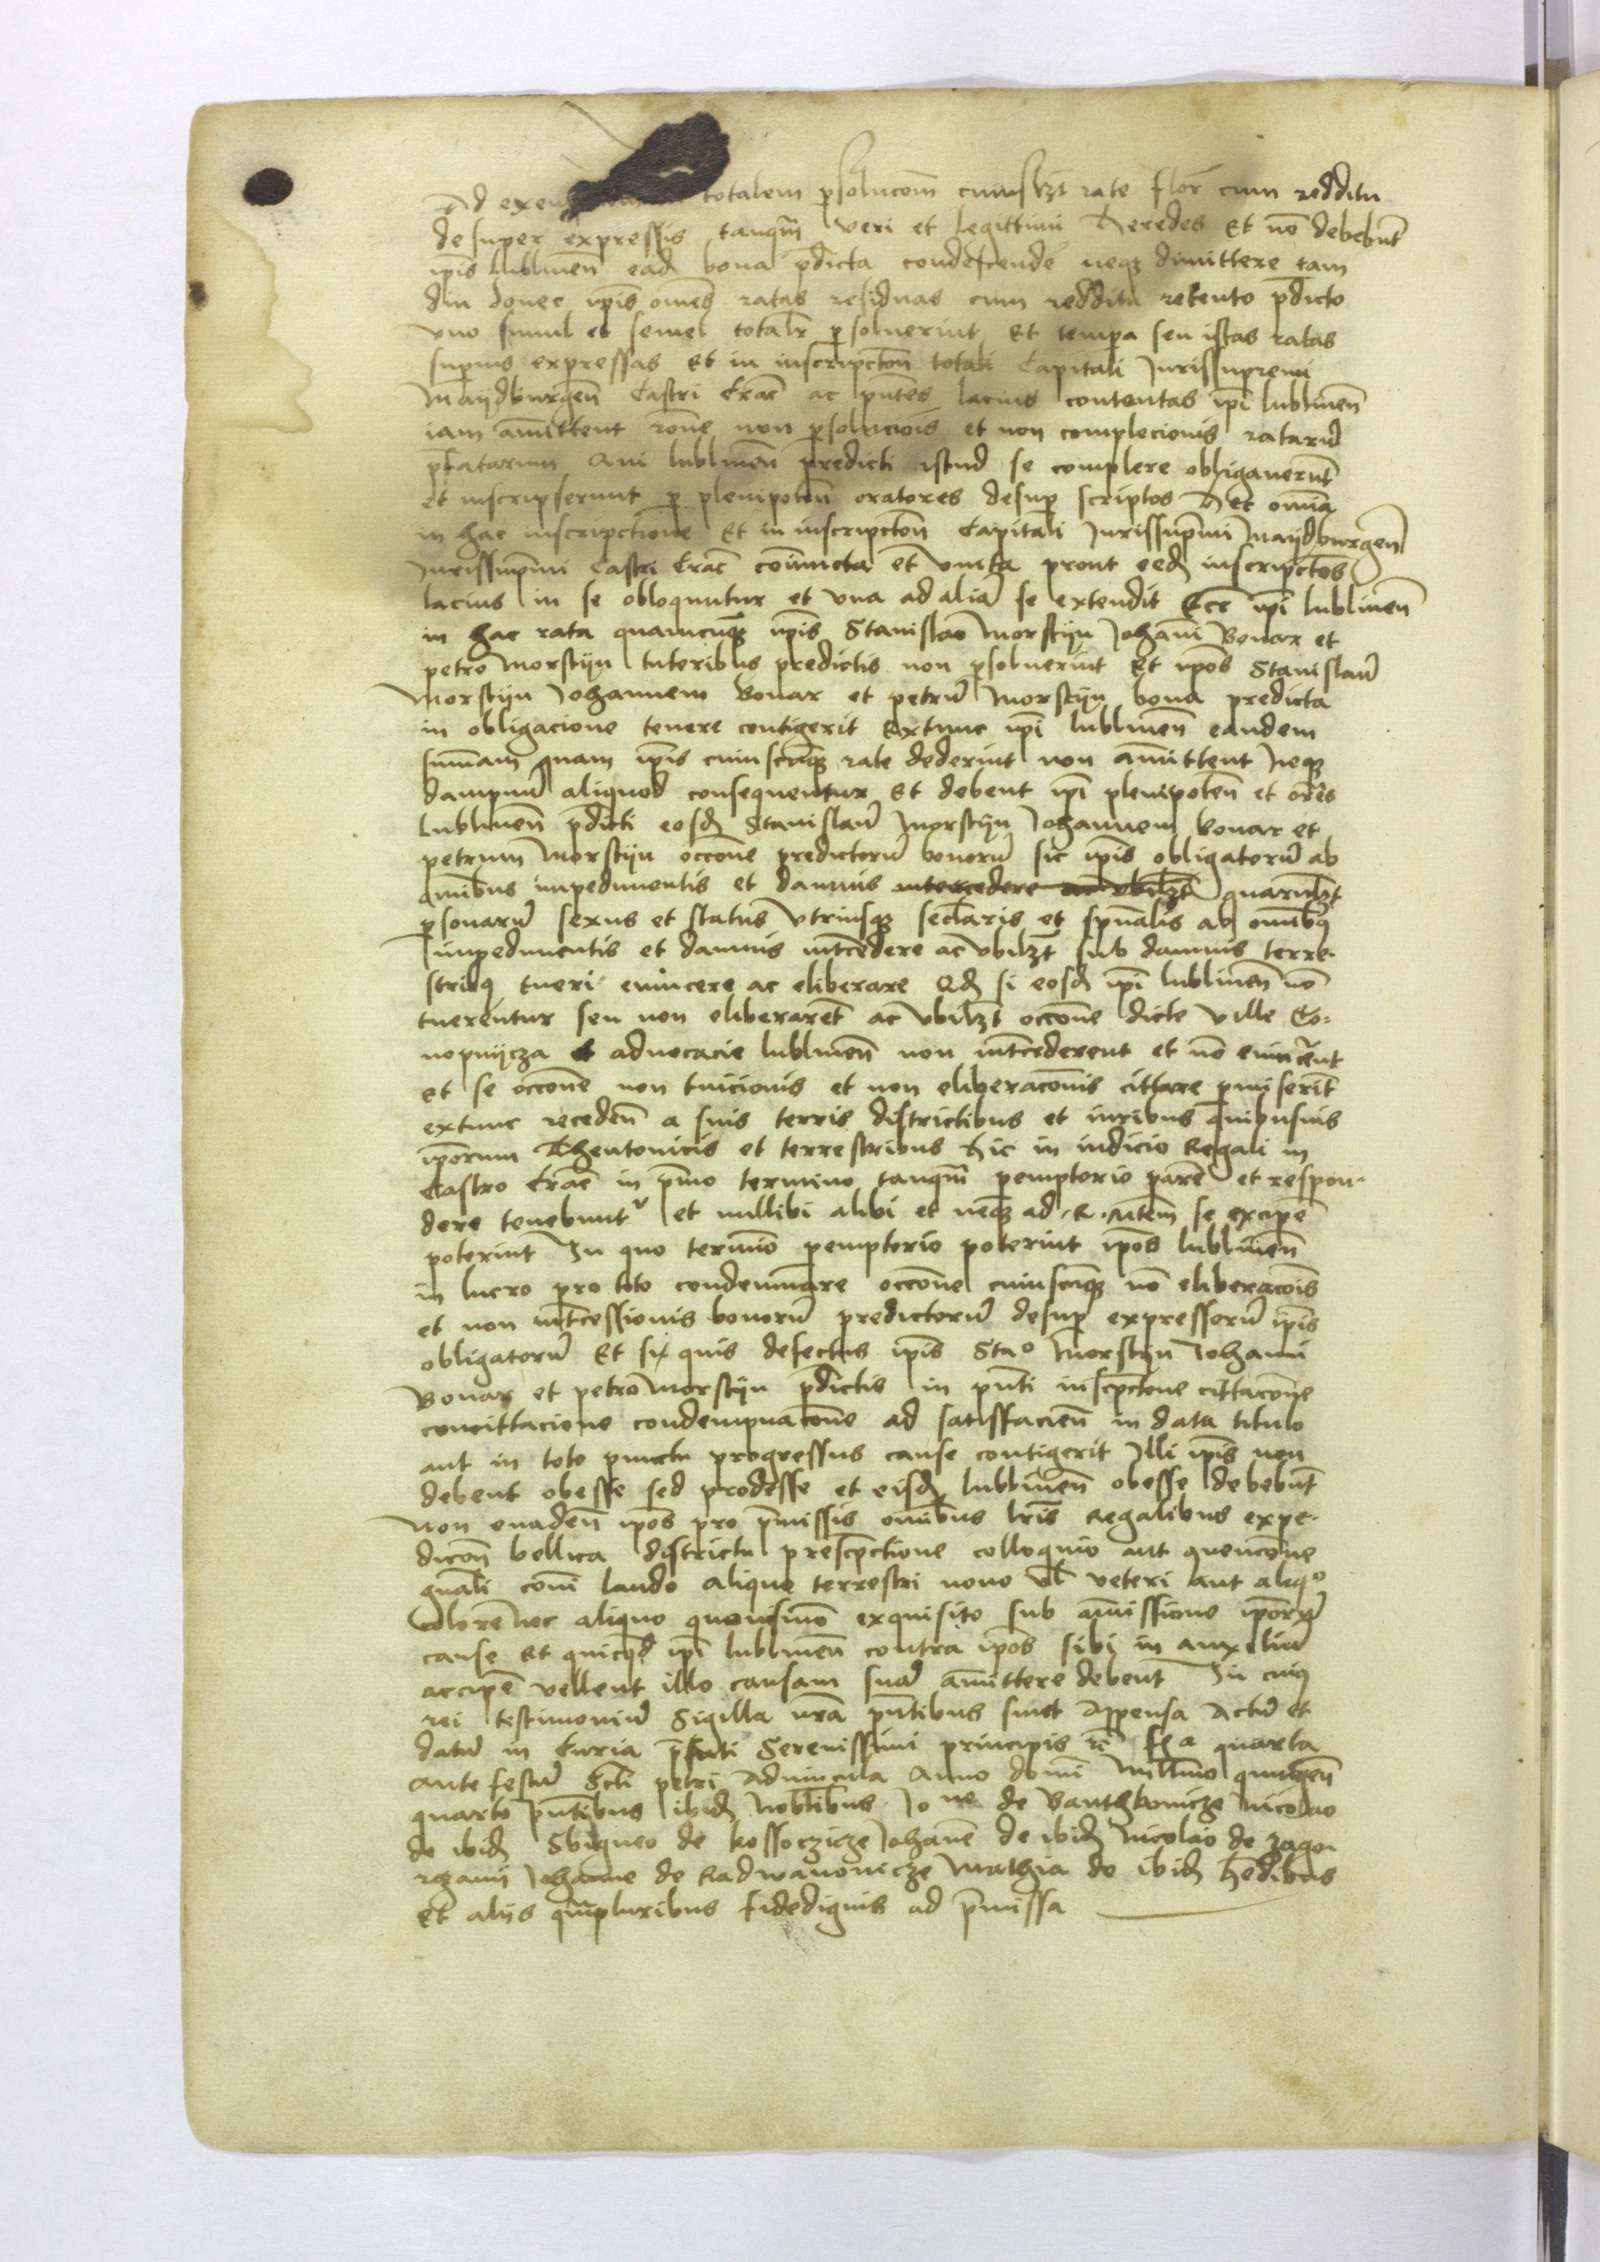 totalem psolucom cuiuslzt rate flor cum redditu
desuper expressis tanqm veri et legittimi Heredes Et no debebut
ipis lublinen ead bona pdicta condescende neqz dimittere tam
diu donec ipis omes ratas residuas cum redditu retento pdicto
vno simul et semel totalr psoluerint Et tempa seu istas ratas
supius expressas Et in inscripcton totali Capitali Jurissupremi
Maydburgen Castri Crac ac pntes lacius contentas ipi lublinen
iam amittent rone non psolucois et non complecionis rataru
pfatarum Qui lublinen predicti istud se complere obligauerut
et inscripserunt p plenipoten oratores desup scriptos Hec omia
in hac inscripctione Et in inscripcton Capitali Jurissupmi Maydburgen
Jurissupmi Castri Crac coniuncta et vnita prout eed inscripctoes
lacius in se obloquntur et vna ad alia se extendit Ecce ipi lublinen
in hac rata quamcuqz ipis Stanislao Morstijn Johani Bonar et
petro Morstijn tutoribus predictis non psoluerint Et ipos Stanislau
Morstijn Johannem Bonar et petru Morstijn bona predicta
in obligacione tenere contigerit Extunc ipi lublinen eandem
sumam quam ipis cuiuscuqz rate dederint non amittent Neqz
dampnu aliquod consequentur Et debent ipi plenipoten et ores
Lublinen pdicti eosd Stanislau Morstijn Johannem Bonar et
petrum Morstijn occone predictoru bonoru sic ipis obligatoru ab
omibus impedimentis et damnis intercedere ac vbilzt quarulzt
psonaru sexus et status vtriusqz seclaris et spualis ab omibq
impedimentis et damnis intcedere ac vbilzt sub damnis terre
stribq tueri euincere ac eliberare Qd si eosd ipi lublinen no
tuerentur seu non eliberaret ac vbilzt occone dicte ville Co
nopnijcza et aduocacie lublinen non intcederent et no euincent
et se occone non tuicionis et non eliberaconis cittare pmiserit
extunc receden a suis terris districtibus et iuribus quibusuis
iporum Theutonicis et terrestribus Hic in iudicio Regali in
Castro Crac in pmo termino tanqm pemptorio pare et respon
dere tenebunt et nullibi alibi et neqz ad R Mtem se excipe
poterint In quo termio pemptorio poterint ipos lublinen
in lucro pro toto condemnare occone cuiuscuqz no eliberacois
et non intcessionis bonoru predictoru desup expressoru ipis
obligatoru Et si quis defectus ipis Stao Morstijn Johanni
Bonar et petro Morstijn pdictis in pnti inscpctone cittacone
concittacione condempnacone ad satisfacien in data titulo
aut in toto puncto progressus cause contigerit Illi ipis non
debent obesse sed prodesse et eisd lublinen obesse debebut
Non euaden ipos pro pmissis omibus lris Regalibus expe
dicon bellica districtu prescpctione colloquio aut
gnali coni laudo aliquo terrestri nouo vl veteri aut aliqo
Colore nec aliquo quouismo exquisito sub amissione iporu
cause Et quicqd ipi lublinen contra ipos sibi in auxiliu
accipe vellent illo causam sua amittere debent In cuiq
rei testimoniu Sigilla nra pntibus sunt Appensa Actu et
datu in Curia pfati Serenissimi principis fa quarta
Ante festu Scti petri Aduincula Anno domi Millmo quingen
quarto pntibus ibid Noblibus Jone de Banthkouicze Nicolao
de ibid Sbigneo de Kossoczicze Johane de ibid Nicolao de Zago
rzanij Johanne de Radwanouicze Mathia de ibid Hedibus
Et aliis qmpluribus fidedignis ad pmissa